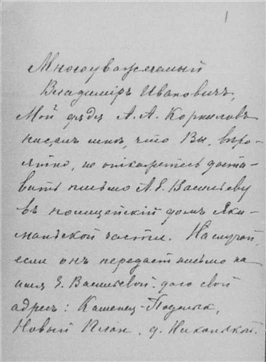 1
Многоуважаемый
Владимiръ Ивановичъ,
Мой дядя А. А. Корниловъ
писалъ мнѣ, что Вы, вѣро-
ятно, не откажетесь доста-
вить письмо А. Е. Васильеву
въ полицейскiй домъ Яки-
манской части. На случай,
если онъ передастъ письмо на
имя Е. Васильевой, даю свой
адресъ: Каменец-Подольск,
Новый План, д. Никольской.